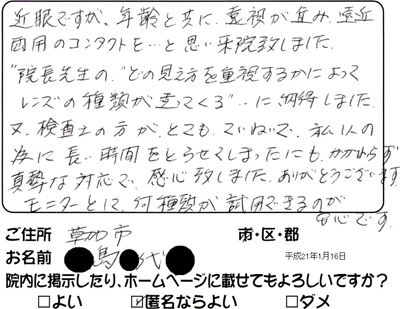 近眼ですが、年齢と共に、遠視が進み、遠近
両用のコンタクトを…と思い来院致しました。
"院長先生の、"どの見え方を重視するかによって
レンズの種類が違ってくる"…に納得しました。
又、検査士の方が、とても、ていねいで、私1人の
為に長い時間をとらせてしまったにも、かかわらず
真摯な対応で、感心致しました。ありがとうございます。
モニターとして、何種類か試用できるのが
安心です。
ご住所 草加市 市・区・郡
お名前 島 代 平成21年1月16日
院内に掲示したり、ホームページに載せてもよろしいですか?
□よい ☑匿名ならよい □ダメ